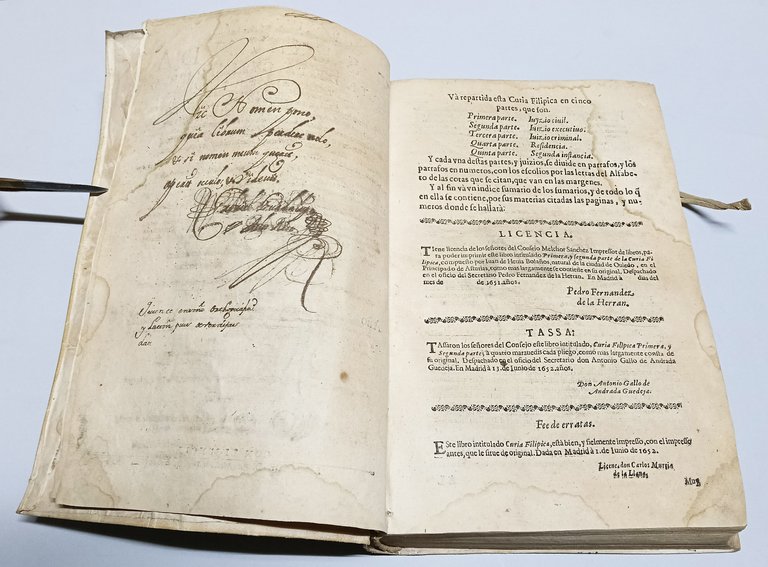 Hic Nomen pono,
quia librum perdere nolo,
et si nomen meum queris,
Và repartida esta Curia Filipica en cinco
partes, que son.
Primera parte. Iuyzio ciuil.
Segunda parte. Iuizio executiuo.
Tercera parte. Iuizio criminal.
Quarta parte. Residencia.
Quinta parte. Segunda instancia.
Y cada vna destas partes, y juizios, se diuide en parrafos, y los
parrafos en numeros, con los escolios por las letras del Alfabeto
de las cotas que se citan, que van en las margenes.
Y al fin và vn indice sumario de los sumarios, y de todo lo q̃
en ella se contiene, por sus materias citadas las paginas, y numeros
donde se hallarà.
LICENCIA.
TIene licencia de los señores del Consejo Melchor Sanchez Impressor de libros, para
poder imprimir este libro intitulado Primera, y segunda parte de la Curia Filipica,
compuesto por Iuan de Heuia Bolaños, natural de la ciudad de Ouiedo, en el
Principado de Asturias, como mas largamente se contiene en su original. Despachado
en el oficio del Secretario Pedro Fernandez de la Herran. En Madrid à dias del
mes de de 1651. años.
Pedro Fernandez
de la Herran.
TASSA:
TAssaron los señores del Consejo este libro intitulado, Curia Filipica Primera, y
Segunda parte, à quatro marauedis cada pliego, como mas largamente consta de
su original. Despachado en el oficio del Secretario don Antonio Gallo de Andrada
Guedeja. En Madrid à 13. de Iunio de 1652. años.
Don Antonio Gallo de
Andrada Guedeja.
Fee de erratas.
ESte libro intitulado Curia Filipica, està bien, y fielmente impresso, con el impresso
antes, que le sirue de original. Dada en Madrid à 1. de Iunio de 1652.
Licenc. don Carlos Murcia
de la Llana.